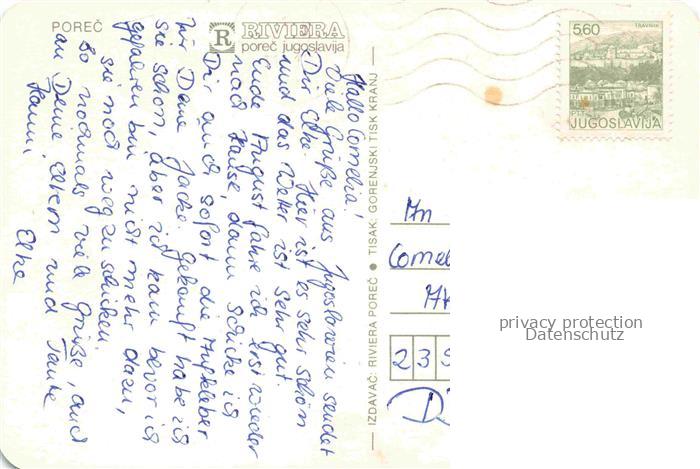 POREČ
R RIVIERA
poreč jugoslavija
Hallo Cornelia!
Viele Grüße aus Jugoslawien sendet
Dir Elke. Hier ist es sehr schön
und das Wetter ist sehr gut.
Ende August fahre ich erst wieder
nach Hause, dann schicke ich
Dir auch sofort die Aufkleber
für Deine Jacke. Gekauft habe ich
sie schon, aber ich kam bevor ich
gefahren bin nicht mehr dazu,
sie noch wegzuschicken.
So nochmals viele Grüße, auch
an Deine Eltern und Tante
Hanni
Elke
IZDAVAČ: RIVIERA POREČ ● TISAK: GORENJSKI TISK KRANJ
5,60
TRAVNIK
PTT
JUGOSLAVIJA
An
Cornel
23
D
privacy protection
Datenschutz